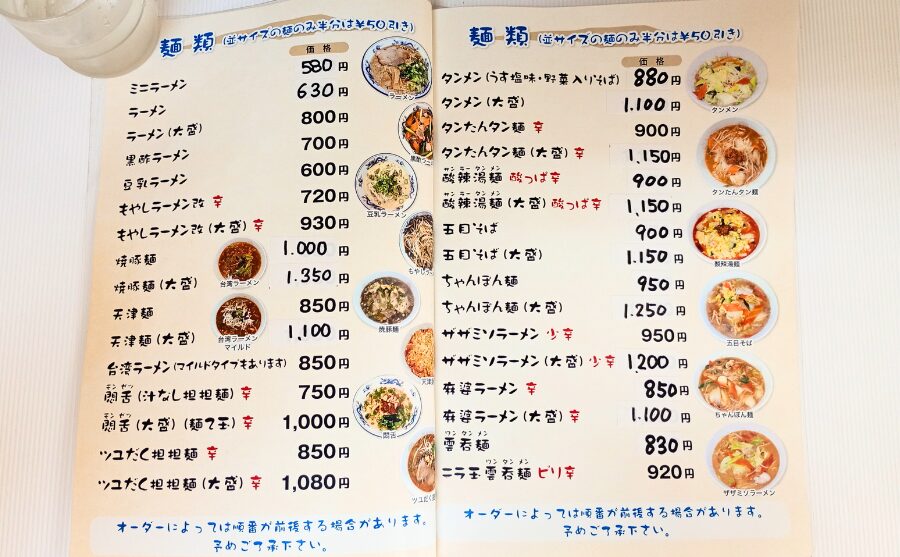 麺類 (並サイズの麺のみ半分は¥50引き)
価格
ミニラーメン 580円
ラーメン 630円
ラーメン(大盛) 800円
黒酢ラーメン 700円
豆乳ラーメン 600円
もやしラーメン改 辛 720円
もやしラーメン改(大盛) 辛 930円
焼豚麺 1.000円
焼豚麺(大盛) 1.350円
天津麺 850円
天津麺(大盛) 1,100円
台湾ラーメン(マイルドタイプもあります) 850円
モン ゼツ
悶舌(汁なし担担麺) 辛 750円
モン ゼツ
悶舌(大盛)(麺2玉) 辛 1,000円
ツユだく担担麺 辛 850円
ツユだく担担麺(大盛) 辛 1,080円
ラーメン
黒酢ラ
豆乳ラーメン
もやしラ
台湾ラーメン
台湾ラーメン
マイルド
焼豚麺
天津
悶舌
ツユだく
オーダーによっては順番が前後する場合があります。
予めご了承下さい。
麺類 (並サイズの麺のみ半分は¥50引き)
価格
タンメン(うす塩味・野菜入りそば) 880円
タンメン(大盛) 1.100円
タンたんタン麺 辛 900円
タンたんタン麺(大盛) 辛 1,150円
サン ラー タン メン
酸辣湯麺 酸っぱ辛 900円
サン ラー タン メン
酸辣湯麺(大盛) 酸っぱ辛 1,150円
五目そば 900円
五目そば(大盛) 1.150円
ちゃんぽん麺 950円
ちゃんぽん(大盛) 1.250円
ザザミソラーメン 少辛 950円
ザザミソラーメン(大盛) 少辛 1200円
麻婆ラーメン 辛 850円
麻婆ラーメン(大盛) 辛 1.100円
ワン タン メン
雲呑麺 830円
ワン タン メン
ニラ玉雲呑麺 ピリ辛 920円
タンメン
タンたんタン麺
酸辣湯麺
五目そば
ちゃんぽん麺
ザザミソラーメン
オーダーによっては順番が前後する場合があります。
予めご了承下さい。